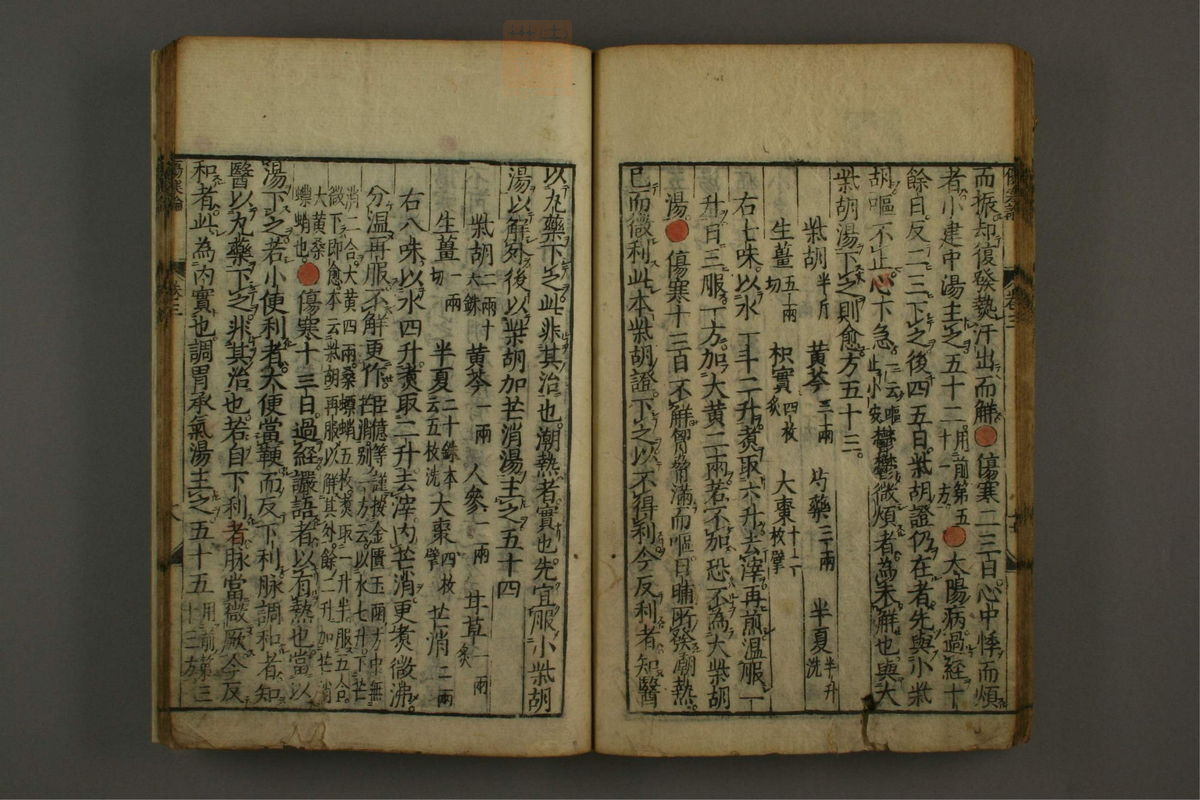 而振却復發熱汗出而解傷寒二三日心中悸而煩
者小建中湯主之五十二用前第五十一方太陽病過經十
餘日反二三下之後四五日柴胡證仍在者先與小柴
胡嘔不止心下急一云嘔止小安鬱鬱微煩者為未解也與大
柴胡湯下之則愈方五十三
柴胡半斤 黃芩三兩 芍藥三兩 半夏半升洗
生薑五兩切 枳實四枚炙 大棗十二枚擘
右七味以水一斗二升煮取六升去滓再煎溫服一
升日三服一方加大黃二兩若不加恐不為大柴胡
湯 傷寒十三日不解胷脅滿而嘔日晡所發潮熱
已而微利此本柴胡證下之以不得利今反利者知醫
以丸藥下之此非其治也潮熱者實也先宜服小柴胡
湯以解外後以柴胡加芒消湯主之五十四
柴胡二兩十六銖 黃芩一兩 人參一兩 甘草一兩炙
生薑一兩切 半夏二十銖本云五枚洗 大棗四枚擘 芒消二兩
右八味以水四升煮取二升去滓內芒消更煮微沸
分溫再服不解更作臣億等謹按金匱玉函方中無芒消別一方云以水七升下芒
消二合大黃四兩桑螵蛸五枚煮取一升半服五合
微下即愈本云柴胡再服以解其外餘二升加芒消
大黃桑螵蛸也 傷寒十三日過經讝語者以有熱也當以
湯下之若小便利者大便當鞕而反下利脉調和者知
醫以丸藥下之非其治也若自下利者脉當微厥今反
和者此為內實也調胃承氣湯主之五十五用前第三十三方
傷寒論
卷三